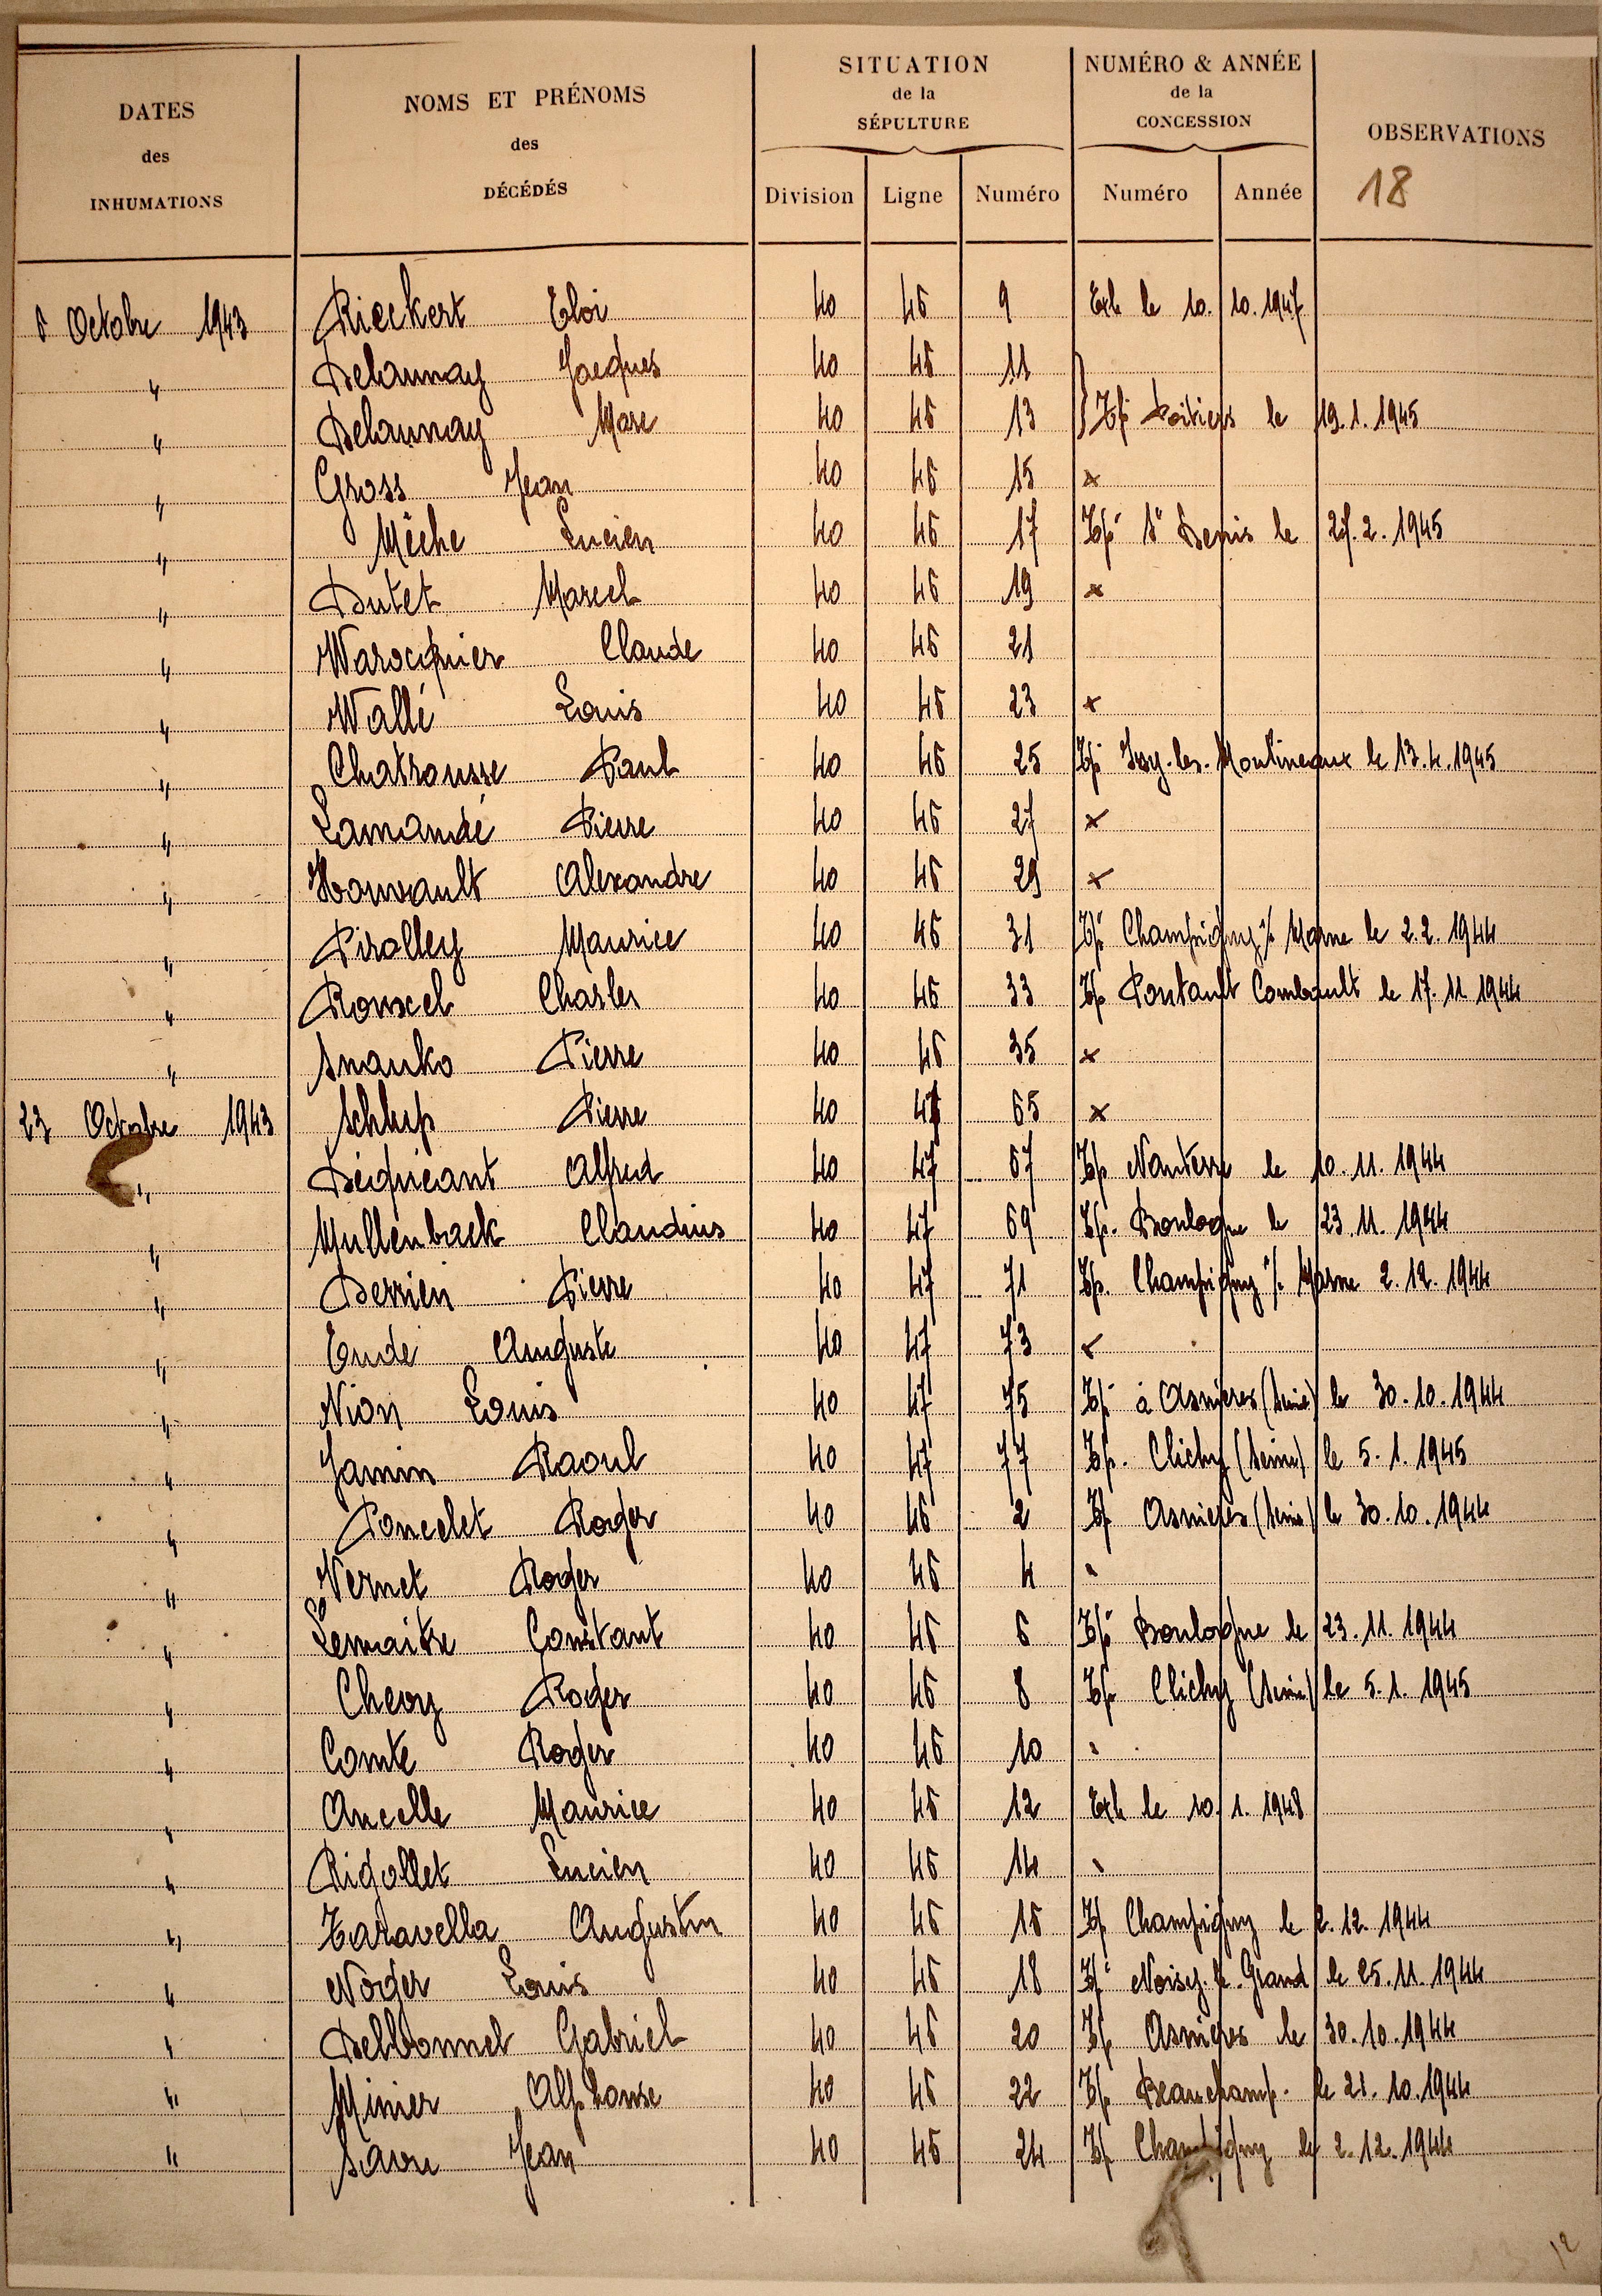 DATES
des
INHUMATIONS
NOMS ET PRÉNOMS
des
DÉCÉDÉS
SITUATION
de la
SÉPULTURE
Division Ligne Numéro
NUMÉRO & ANNÉE
de la
CONCESSION
Numéro Année
OBSERVATIONS
18
6 Octobre 1943 Rieckert Eloi 40 46 9 Exh le 10. 10. 1947
" Delaunay Jacques 40 46 11
" Delaunay Marc 40 46 13 } Tp Poitiers le 19. 1. 1945
" Gross Jean 40 46 15 x
" Mèche Lucien 40 46 17 Tp St Denis le 27. 2. 1945
" Dutet Marcel 40 46 19 x
" Warocquier Claude 40 46 21
" Wallé Louis 40 46 23 x
" Chatrousse Paul 40 46 25 Tp Issy-les-Moulineaux le 13. 4. 1945
" Lamandé Pierre 40 46 27 x
" Houvault Alexandre 40 46 29 x
" Pirolley Maurice 40 46 31 Tp Champigny s/ Marne le 2. 2. 1944
" Rouxel Charles 40 46 33 Tp Pontault Combault le 17. 11 1944
" Snauko Pierre 40 46 35 x
23 Octobre 1943 Schlup Pierre 40 47 65 x
" Déquéant Alfred 40 47 67 Tp Nanterre le 10. 11. 1944
" Mullenback Claudius 40 47 69 Tp. Boulogne le 23. 11. 1944
" Derrien Pierre 40 47 71 Tp. Champigny s/ Marne 2. 12. 1944
" Eudé Auguste 40 47 73 x
" Nion Louis 40 47 75 Tp à Asnières (Seine) le 30. 10. 1944
" Jamin Raoul 40 47 77 Tp. Clichy (Seine) le 5. 1. 1945
" Poncelet Roger 40 46 2 Tp Asnières (Seine) le 30. 10. 1944
" Vernet Roger 40 46 4
" Lemaitre Constant 40 46 6 Tp Boulogne le 23. 11. 1944
" Chevy Roger 40 46 8 Tp Clichy (Seine) le 5. 1. 1945
" Comte Roger 40 46 10
" Ancelle Maurice 40 46 12 Exh le 10. 1. 1948
" Rigollet Lucien 40 46 14
" Taravella Augustin 40 46 16 Tp Champigny le 2. 12. 1944
" Noger Louis 40 46 18 Tp Noisy-le-Grand le 25. 11. 1944
" Delbonnel Gabriel 40 46 20 Tp Asnières le 30. 10. 1944
" Minier Alphonse 40 46 22 Tp Beauchamp. le 21. 10. 1944
" Savu Jean 40 46 24 Tp Champigny le 2. 12. 1944
12